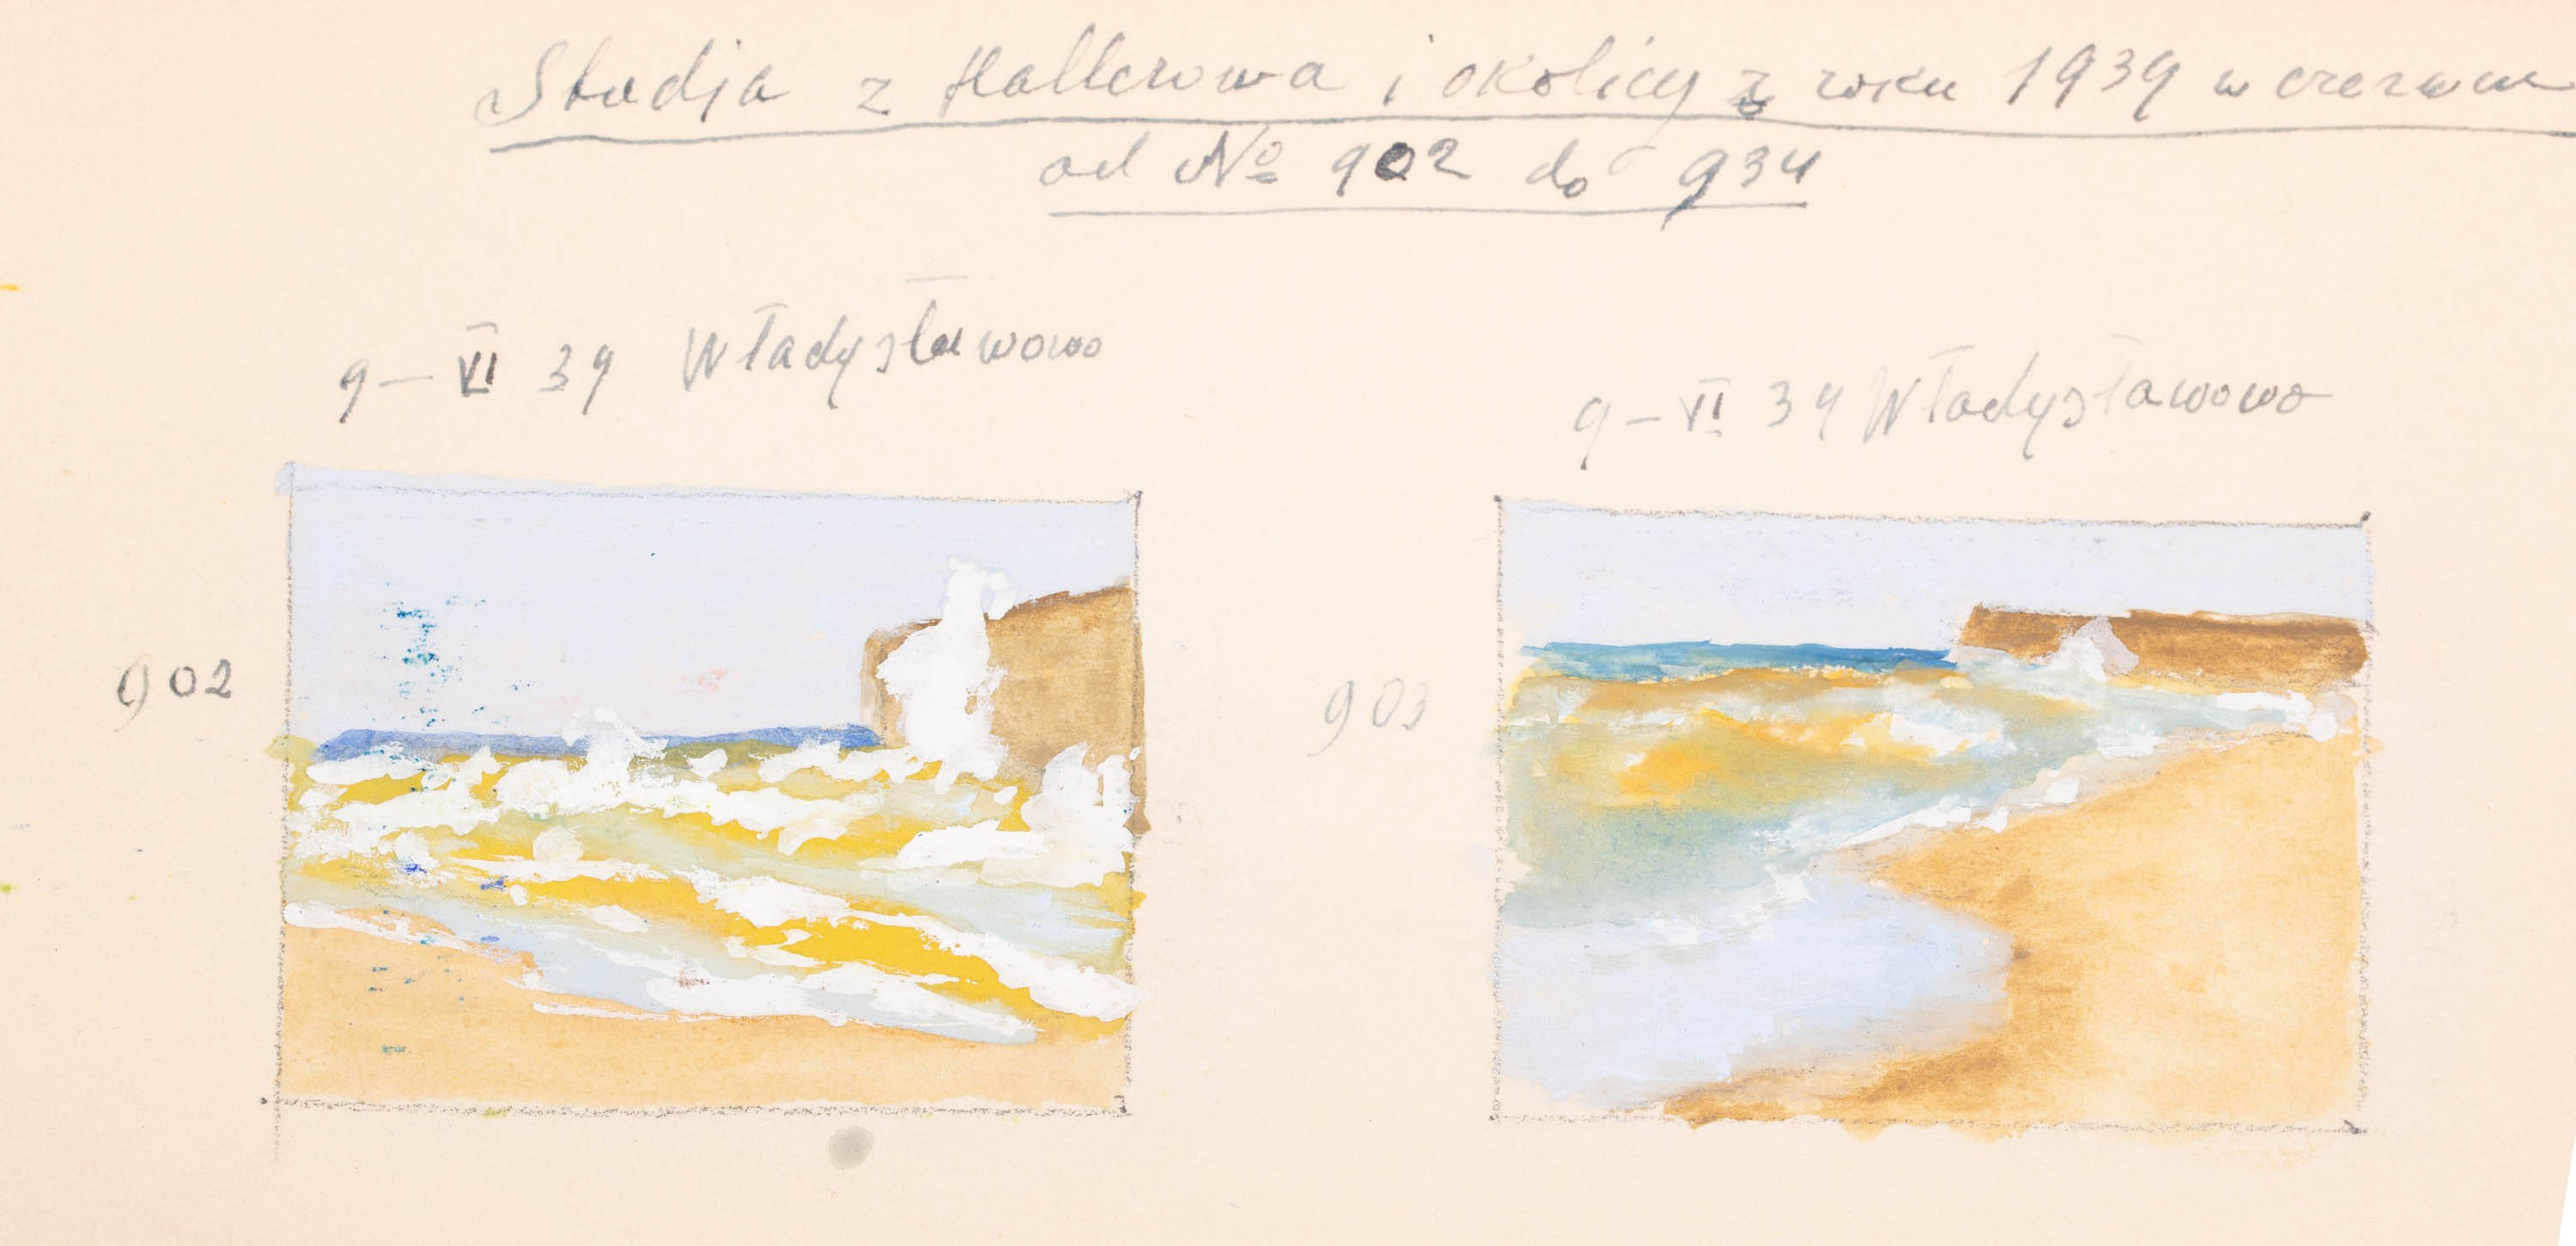 Studja z Hallerowa i okolicy z roku 1939 w czerwcu
od № 902 do 934
9 – VI 39 Władysławowo
9 – VI 39 Władysławowo
902
903